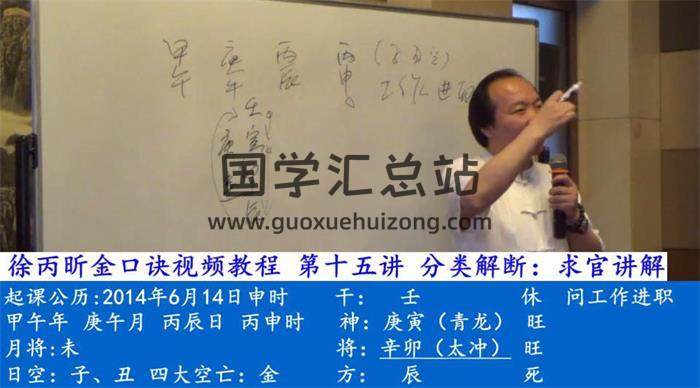 甲 庚 丙 丙
午 午 辰 申
工作进
壬
国学汇总站
www.guoxuehuizong.com
徐丙昕金口诀视频教程 第十五讲 分类解断：求官讲解
起课公历:2014年6月14日申时 干： 壬 休 问工作进职
甲午年 庚午月 丙辰日 丙申时 神：庚寅（青龙） 旺
月将:未 将：辛卯（太冲） 旺
日空：子、丑 四大空亡：金 方： 辰 死